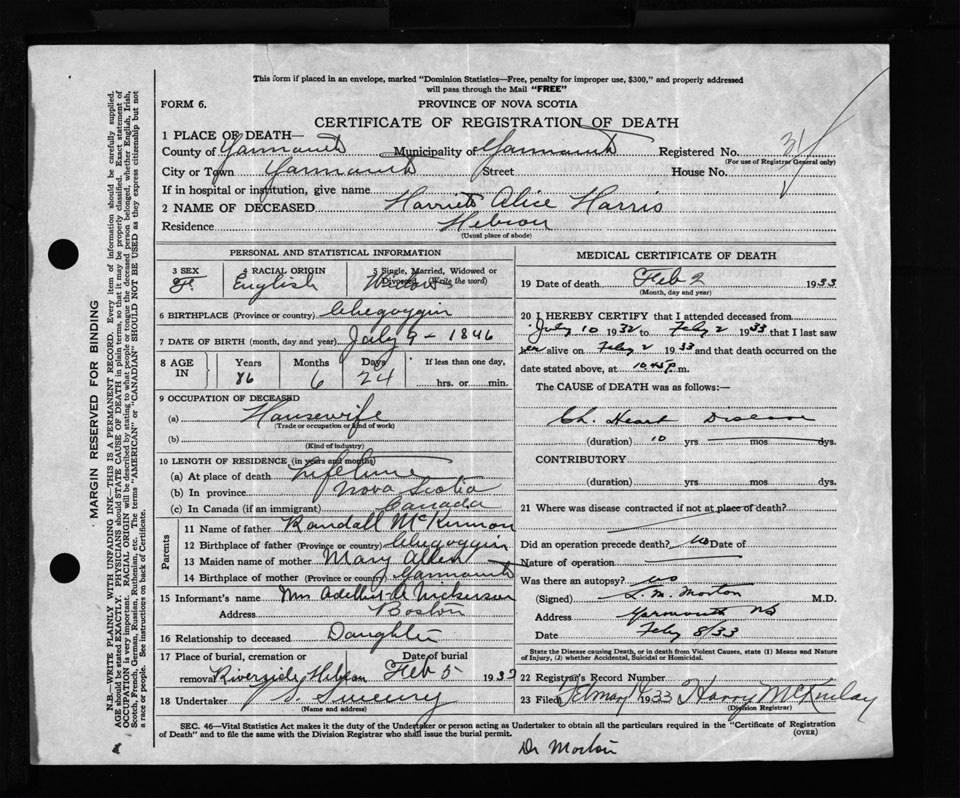 This form if placed in an envelope, marked "Dominion Statistics—Free, penalty for improper use, $300," and properly addressed
will pass through the Mail "FREE"
FORM 6.
PROVINCE OF NOVA SCOTIA
CERTIFICATE OF REGISTRATION OF DEATH
1 PLACE OF DEATH—
County of Yarmouth Municipality of Yarmouth Registered No. 31
(For use of Registrar General only)
City or Town Yarmouth Street House No.
If in hospital or institution, give name
2 NAME OF DECEASED Harriet Alice Harris
Residence Hebron
(Usual place of abode)
PERSONAL AND STATISTICAL INFORMATION
3 SEX 4 RACIAL ORIGIN 5 Single, Married, Widowed or Divorced (Write the word)
F. English
6 BIRTHPLACE (Province or country) Chegoggin
7 DATE OF BIRTH (month, day and year) July 9 - 1846
8 AGE IN Years Months Days If less than one day,
86 6 24 hrs. or min.
9 OCCUPATION OF DECEASED
(a) Housewife
(Trade or occupation or kind of work)
(b)
(Kind of industry)
10 LENGTH OF RESIDENCE (in years and months)
(a) At place of death Lifetime
(b) In province Nova Scotia
(c) In Canada (if an immigrant) Canada
Parents
11 Name of father Randall McKinnon
12 Birthplace of father (Province or country) Chegoggin
13 Maiden name of mother Mary Allen
14 Birthplace of mother (Province or country) Yarmouth
15 Informant's name Mrs Nickerson
Address Boston
16 Relationship to deceased Daughter
17 Place of burial, cremation or removal Date of burial
Riverside, Hebron Feb 5 1933
18 Undertaker S. Sweeny
(Name and address)
MEDICAL CERTIFICATE OF DEATH
19 Date of death Feb 2 1933
(Month, day and year)
20 I HEREBY CERTIFY that I attended deceased from
July 10 1932 to Feby 2 1933 that I last saw
her alive on Feby 2 1933 and that death occurred on the
date stated above, at 10.45 p.m.
The CAUSE of DEATH was as follows:
Ch. Heart Disease
(duration) 10 yrs mos dys.
CONTRIBUTORY
(duration) yrs. mos. dys.
21 Where was disease contracted if not at place of death?
Did an operation precede death? no Date of
Nature of operation
Was there an autopsy? no
(Signed) S. M. Morton M.D.
Address Yarmouth NS
Date Feby 8/33
State the Disease causing Death, or in death from Violent Causes, state (1) Means and Nature
of Injury, (2) whether Accidental, Suicidal or Homicidal.
22 Registrar's Record Number
23 Filed 1933 Harry McKinlay
(Division Registrar)
SEC. 46—Vital Statistics Act makes it the duty of the Undertaker or person acting as Undertaker to obtain all the particulars required in the "Certificate of Registration
of Death" and to file the same with the Division Registrar who shall issue the burial permit.
(OVER)
Dr Morton
MARGIN RESERVED FOR BINDING
N.B.—WRITE PLAINLY WITH UNFADING INK—THIS IS A PERMANENT RECORD. Every item of information should be carefully supplied.
AGE should be stated EXACTLY. PHYSICIANS should STATE CAUSE OF DEATH in plain terms, so that it may be properly classified. Exact statement of
OCCUPATION is very important. RACIAL ORIGIN will be described by stating to what people or tongue the deceased person belonged, whether English, Irish,
Scotch, French, German, Russian, Ruthenian, etc. The terms "AMERICAN" or "CANADIAN" SHOULD NOT BE USED as they express citizenship but not
a race or people. See instructions on back of Certificate.